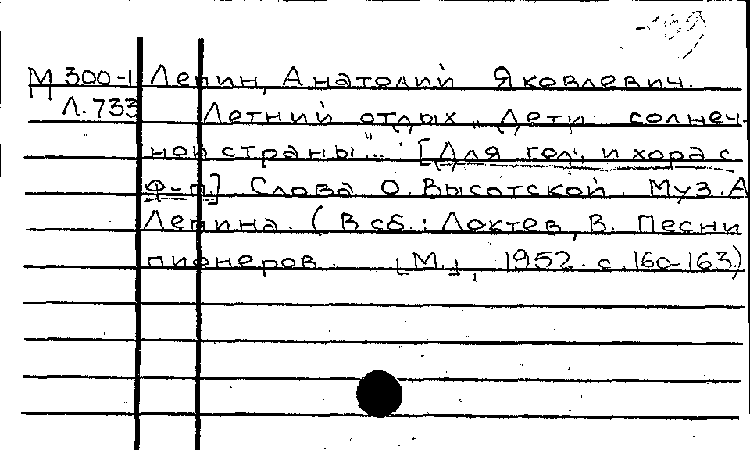 М 300-1 Лепин, Анатолий Яковлевич.
Л. 733 Летний отдых „Дети солнеч-
ной страны"... [Для гол. и хора с
ф-п] Слова О. Высотской. Муз. А
Лепина. (В сб.: Локтев, В. Песни
пионеров. [М.], 1952. с. 160-163)